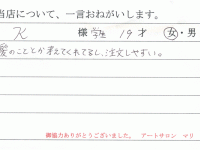 当店について、一言おねがいします。
K 様 学生 19才 女・男
髪のことを考えてくれてるし、注文しやすい。
御協力ありがとうございました。 アートサロン マリ